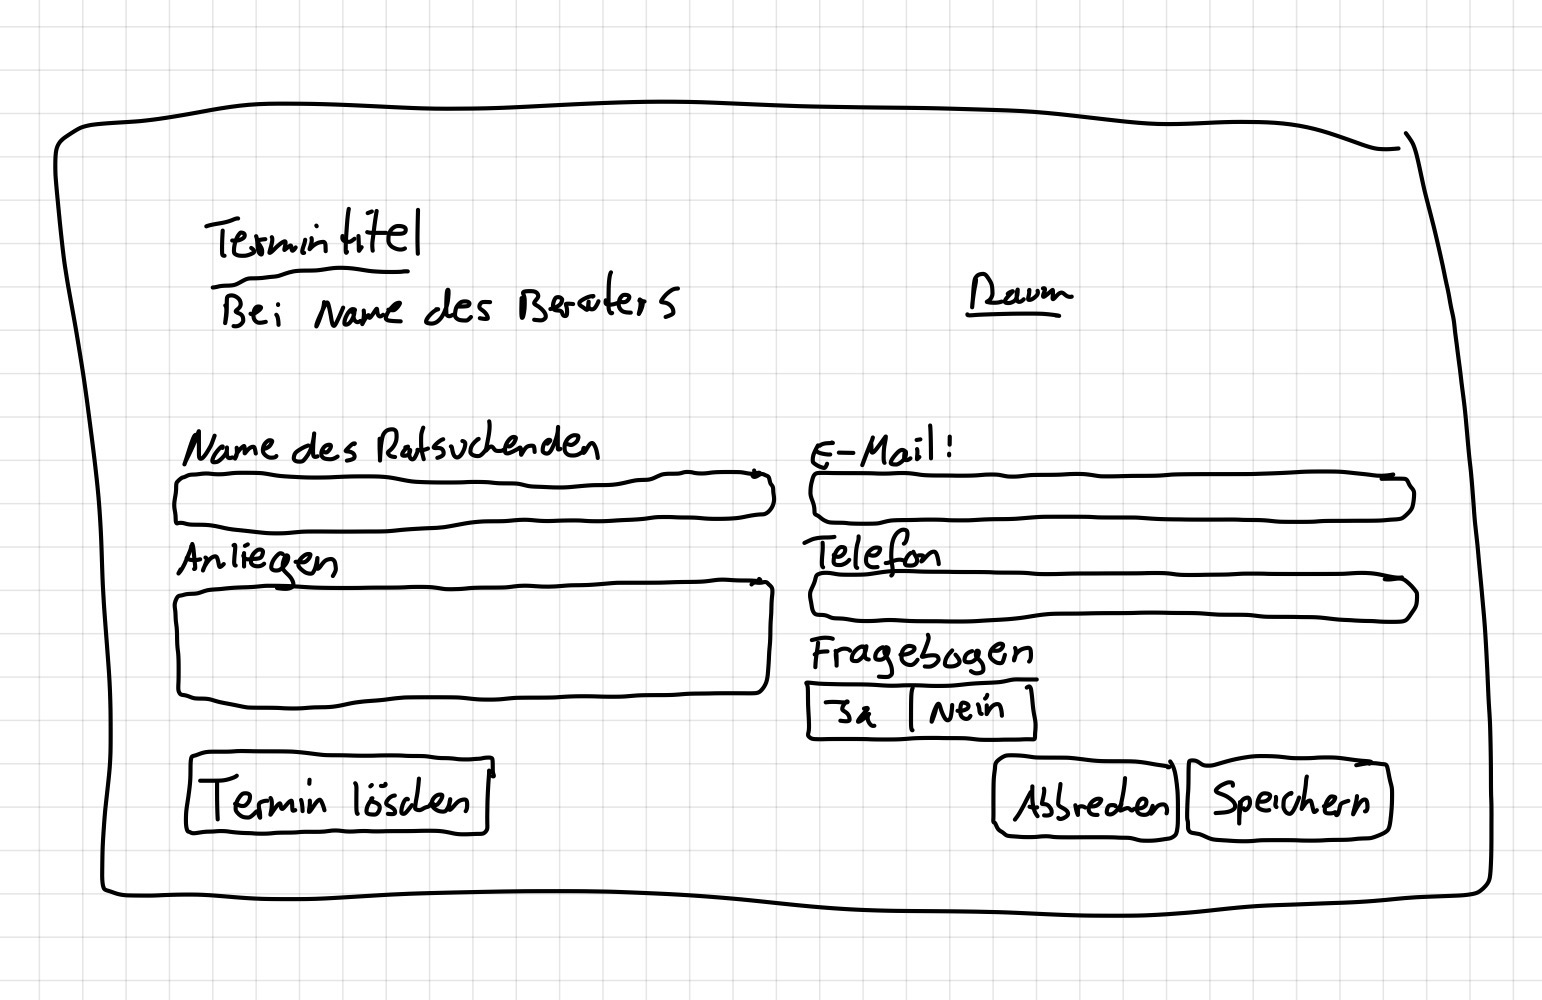 Termintitel
Bei Name des Beraters
Raum
Name des Ratsuchenden
E-Mail:
Anliegen
Telefon
Fragebogen
Ja
Nein
Termin löschen
Abbrechen
Speichern